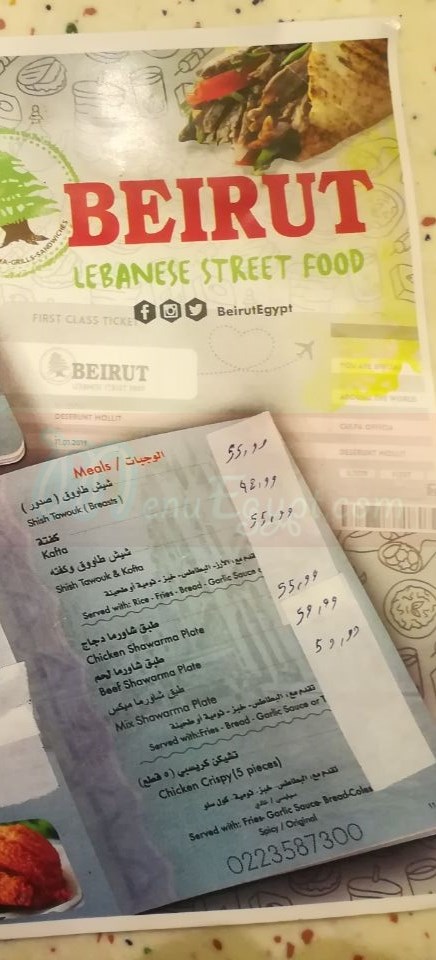 A-GRILLS-SANDWICHES
BEIRUT
LEBANESE STREET FOOD
BeirutEgypt
FIRST CLASS TICKET
BEIRUT
LEBANESE STREET FOOD
DESERUNT MOLLIT
CULPA OFFICIA
11.01.2019
DESERUNT MOLLIT
MenuEgypt.com
Meals / الوجبات
شيش طاووق ( صدور )
55,99
Shish Tawouk ( Breasts )
كفتة
48,99
Kofta
شيش طاووق وكفته
55,99
Shish Tawouk & Kofta
تقدم مع: الأرز- البطاطس- خبز - تومية أو طحينة
Served with: Rice - Fries - Bread - Garlic Sauce
طبق شاورما دجاج
55,99
Chicken Shawarma Plate
طبق شاورما لحم
59,99
Beef Shawarma Plate
طبق شاورما ميكس
Mix Shawarma Plate
تقدم مع: البطاطس- خبز - تومية أو طحينة
Served with:Fries - Bread - Garlic Sauce or T
تشيكن كريسبي (٥ قطع)
Chicken Crispy(5 pieces)
تقدم مع: البطاطس- خبز- تومية- كول سلو
Served with: Fries- Garlic Sauce- Bread-Coles
Spicy / Original
0223587300